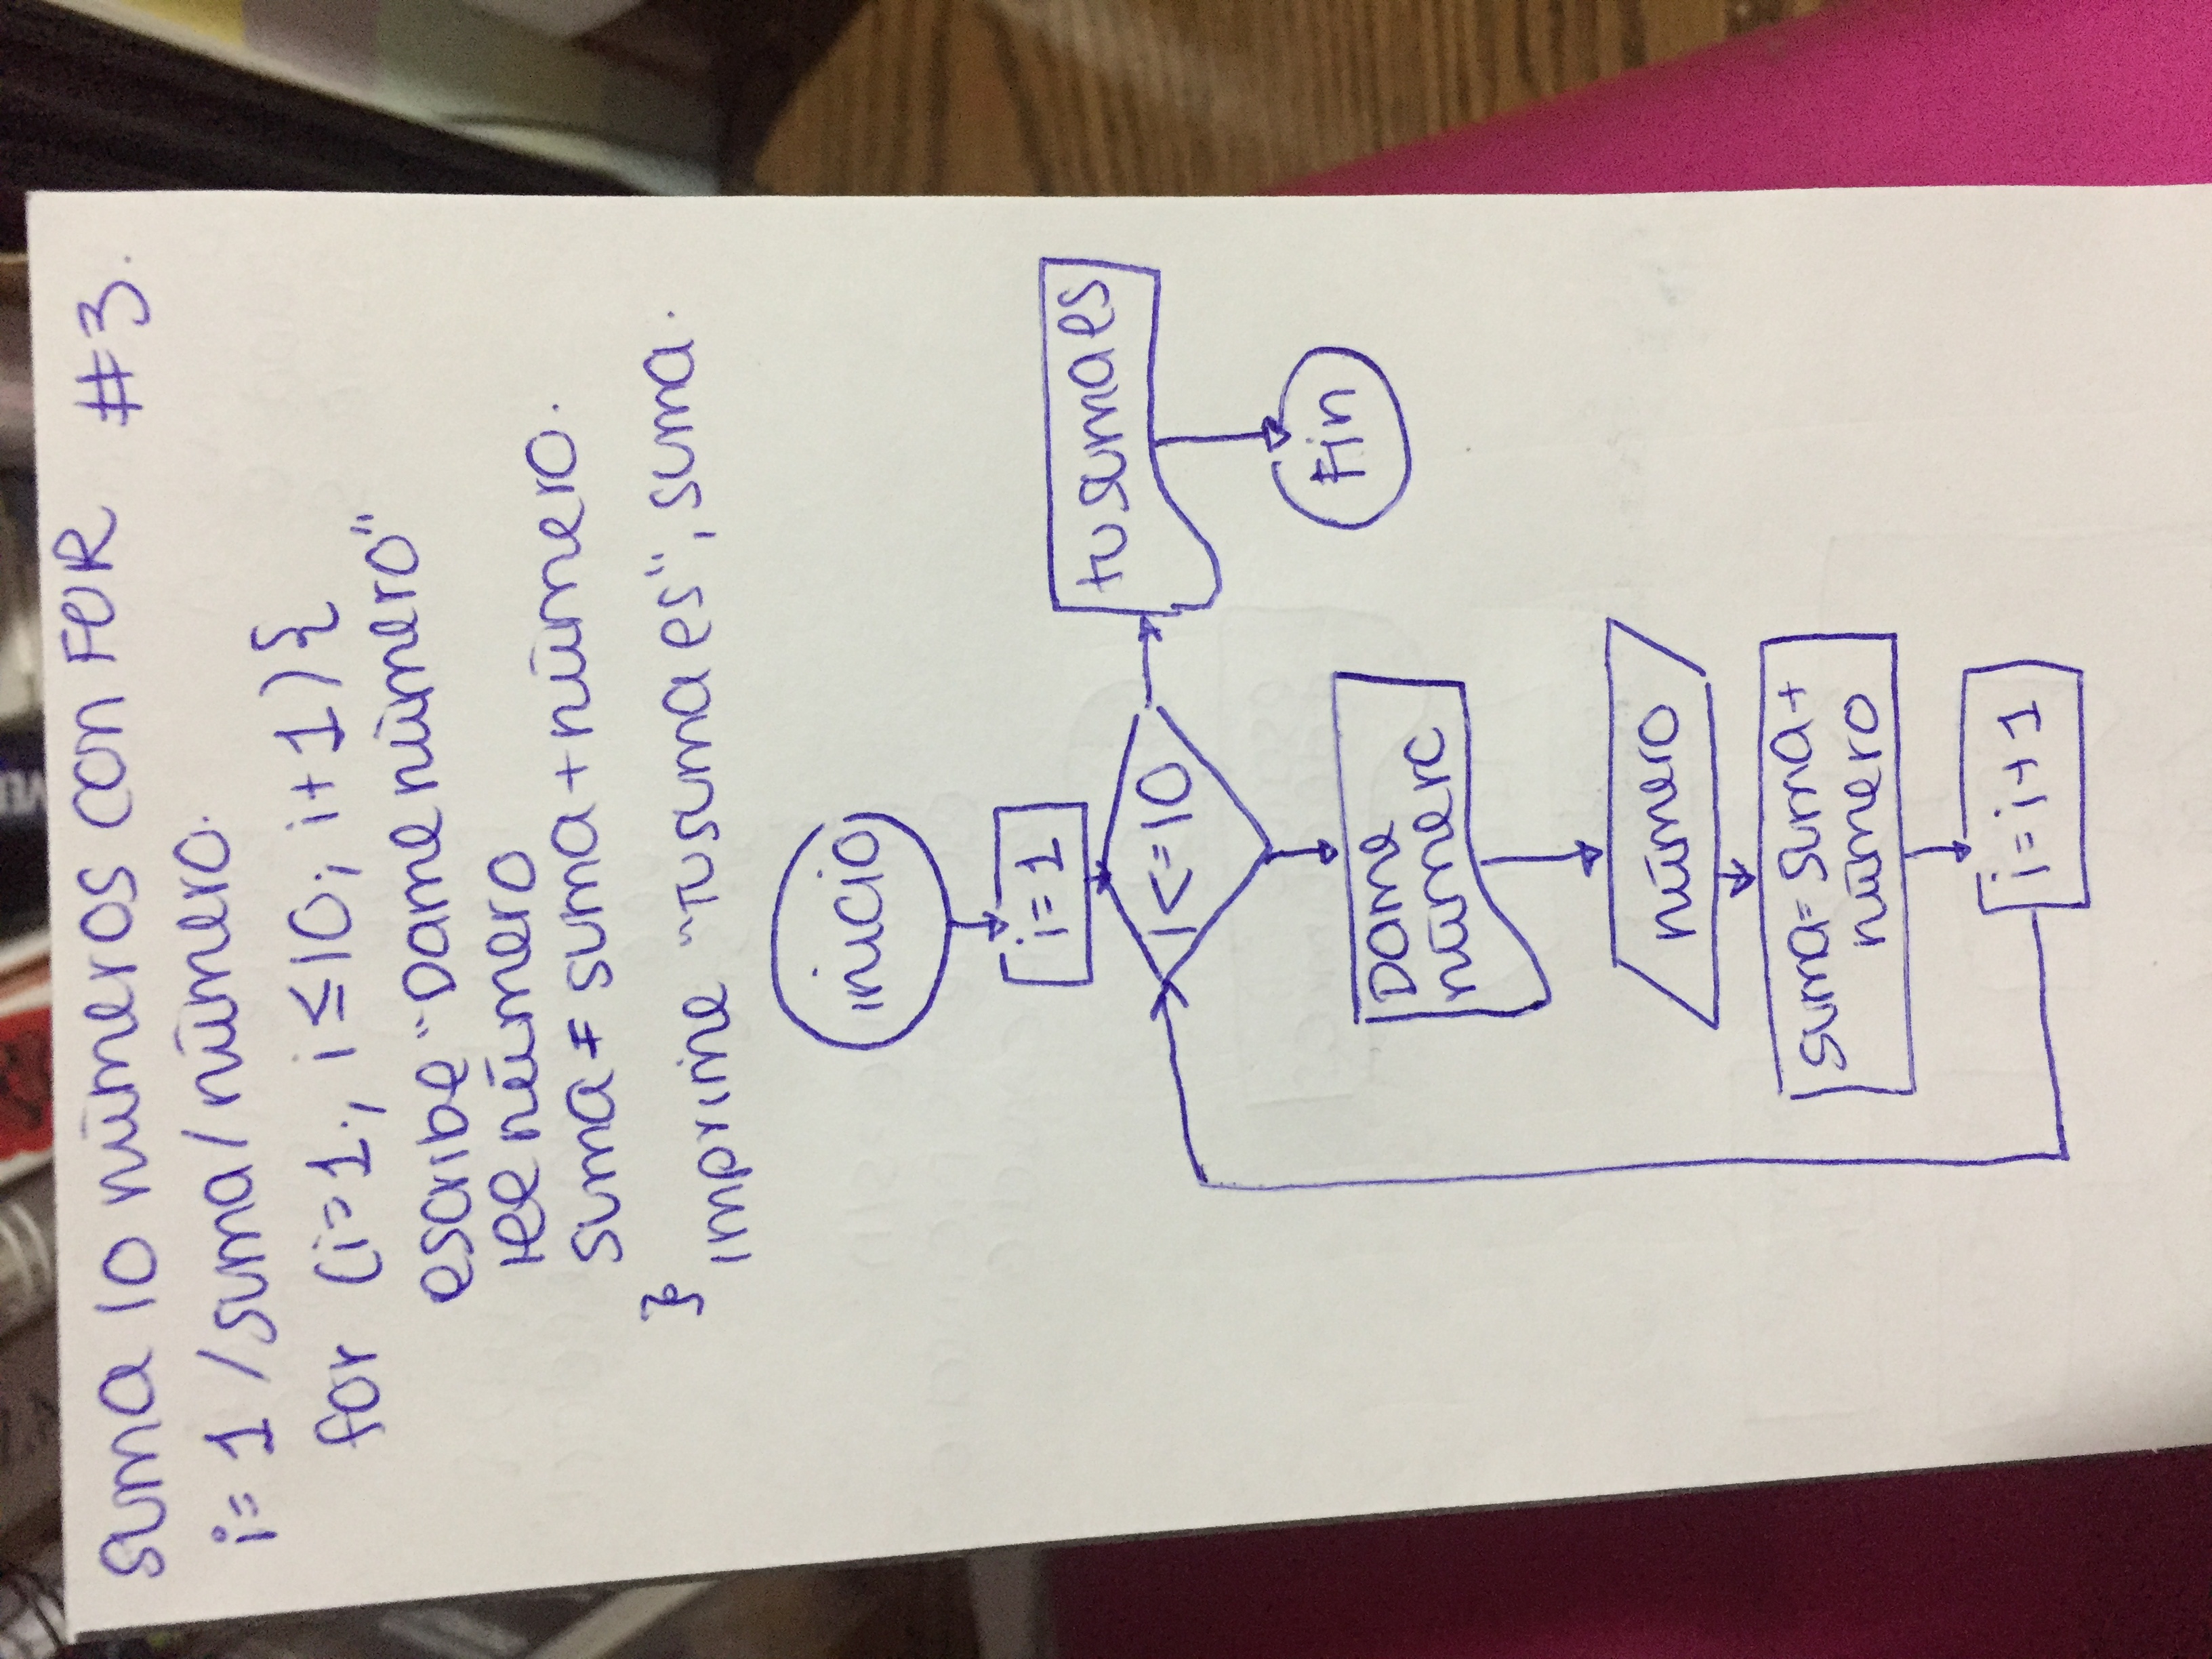 suma 10 números con FOR #3.
i=1 /suma/número.
for (i=1; i≤10; i+1){
escribe "Dame número"
lee número
suma = suma+número.
}
imprime "Tu suma es", suma.
inicio
i=1
i<=10
tu suma es
Fin
Dame
número
número
suma=suma+
número
i=i+1